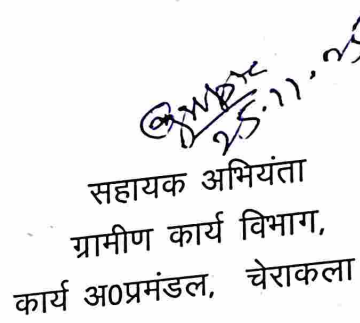 25.11.25
सहायक अभियंता
ग्रामीण कार्य विभाग,
कार्य अ0प्रमंडल, चेराकला